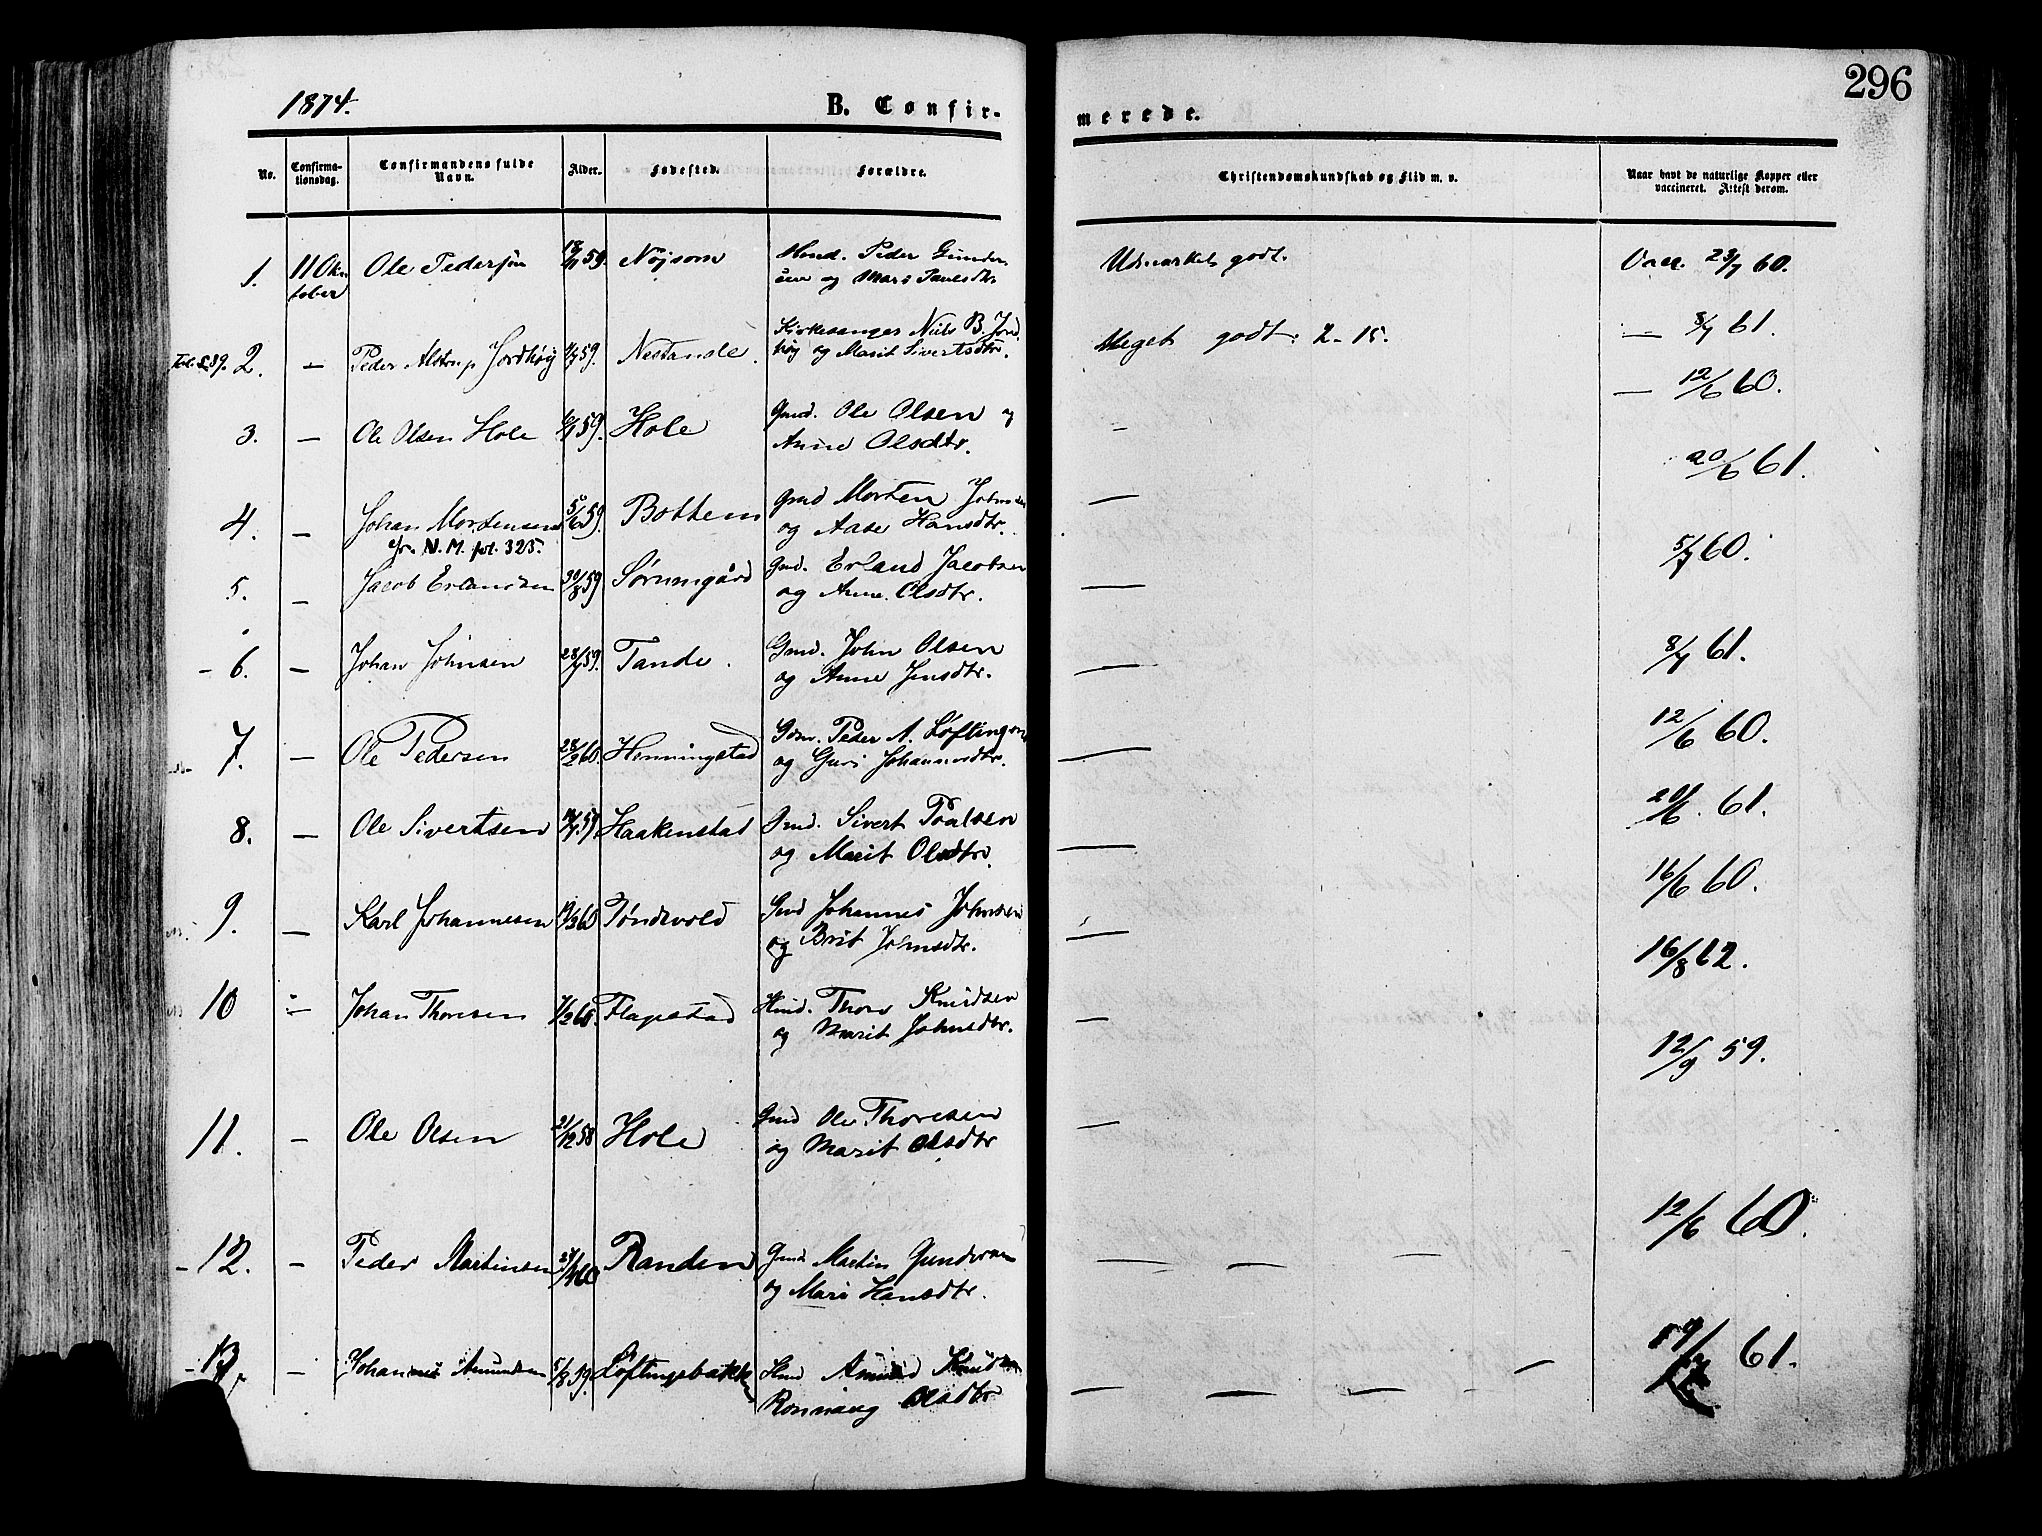 296
1874.
B. Confir-
merede.
No.
Confirma-
tionsdag.
Confirmandens fulde
Navn.
Alder.
Fødested.
Forældre.
Christendomskundskab og Flid m. v.
Naar havt de naturlige Kopper eller
vaccineret. Attest derom.
1. 11 Okto Ole Pedersen 59. Nøjsom Peder Gunder
ber og Mari Paulsdtr.
Udmærket godt. Vacc. 23/7 60.
Kirkesanger Niels B. Jord
2. — Peder Alstrup Jordhøy 59. Nestande høy og Marit Sivertsdtr.
Meget godt: 2-15. — 8/7 61.
3. — Ole Olsen Hole 59. Hole Gmd. Ole Olsen og
Anne Olsdtr.
— — 12/6 60.
4. — Johan Mortensen 5/6 59. Bottem Gmd Morten Johnsen
cfr. N. M. fol. 325. og Aase Hansdtr.
— 20/6 61.
5. — Jacob Erlandsen 30/8 59 Sørumgård Gmd. Erland Jacobsen
og Anne Olsdtr.
— 5/7 60.
6. — Johan Johnsen 59. Tande. Gmd. John Olsen
og Anne Jensdtr.
— 8/7 61.
7. — Ole Pedersen 28/2 60. Henningstad Peder A. Løftingsm
og Guri Johannesdtr.
— 12/6 60.
8. — Ole Sivertsen 59. Haakenstad Gmd. Sivert Paalsen
og Marit Olsdtr.
— 20/6. 61.
9. — Karl Johannesen 60 Tøndevold Gmd Johannes Johnsen
og Brit Johnsdtr.
— 16/6 60.
10 — Johan Thoresen 60. Flagestad Hmd. Thore Knudsen
og Marit Johnsdtr.
— 16/8 62.
11. — Ole Olsen 21/12 58 Hole Gmd Ole Thoresen
og Marit Olsdtr
— 12/9 59.
12. — Peder Martinsen 60 Randen Gmd Martin Gundersen
og Mari Hansdtr.
— — — 12/6 60.
13. — Johannes Amundsen 5/8 59. Løftingsbakken Hmd Amund Knudsen
Rønnaug Olsdtr
— — — — — 61.